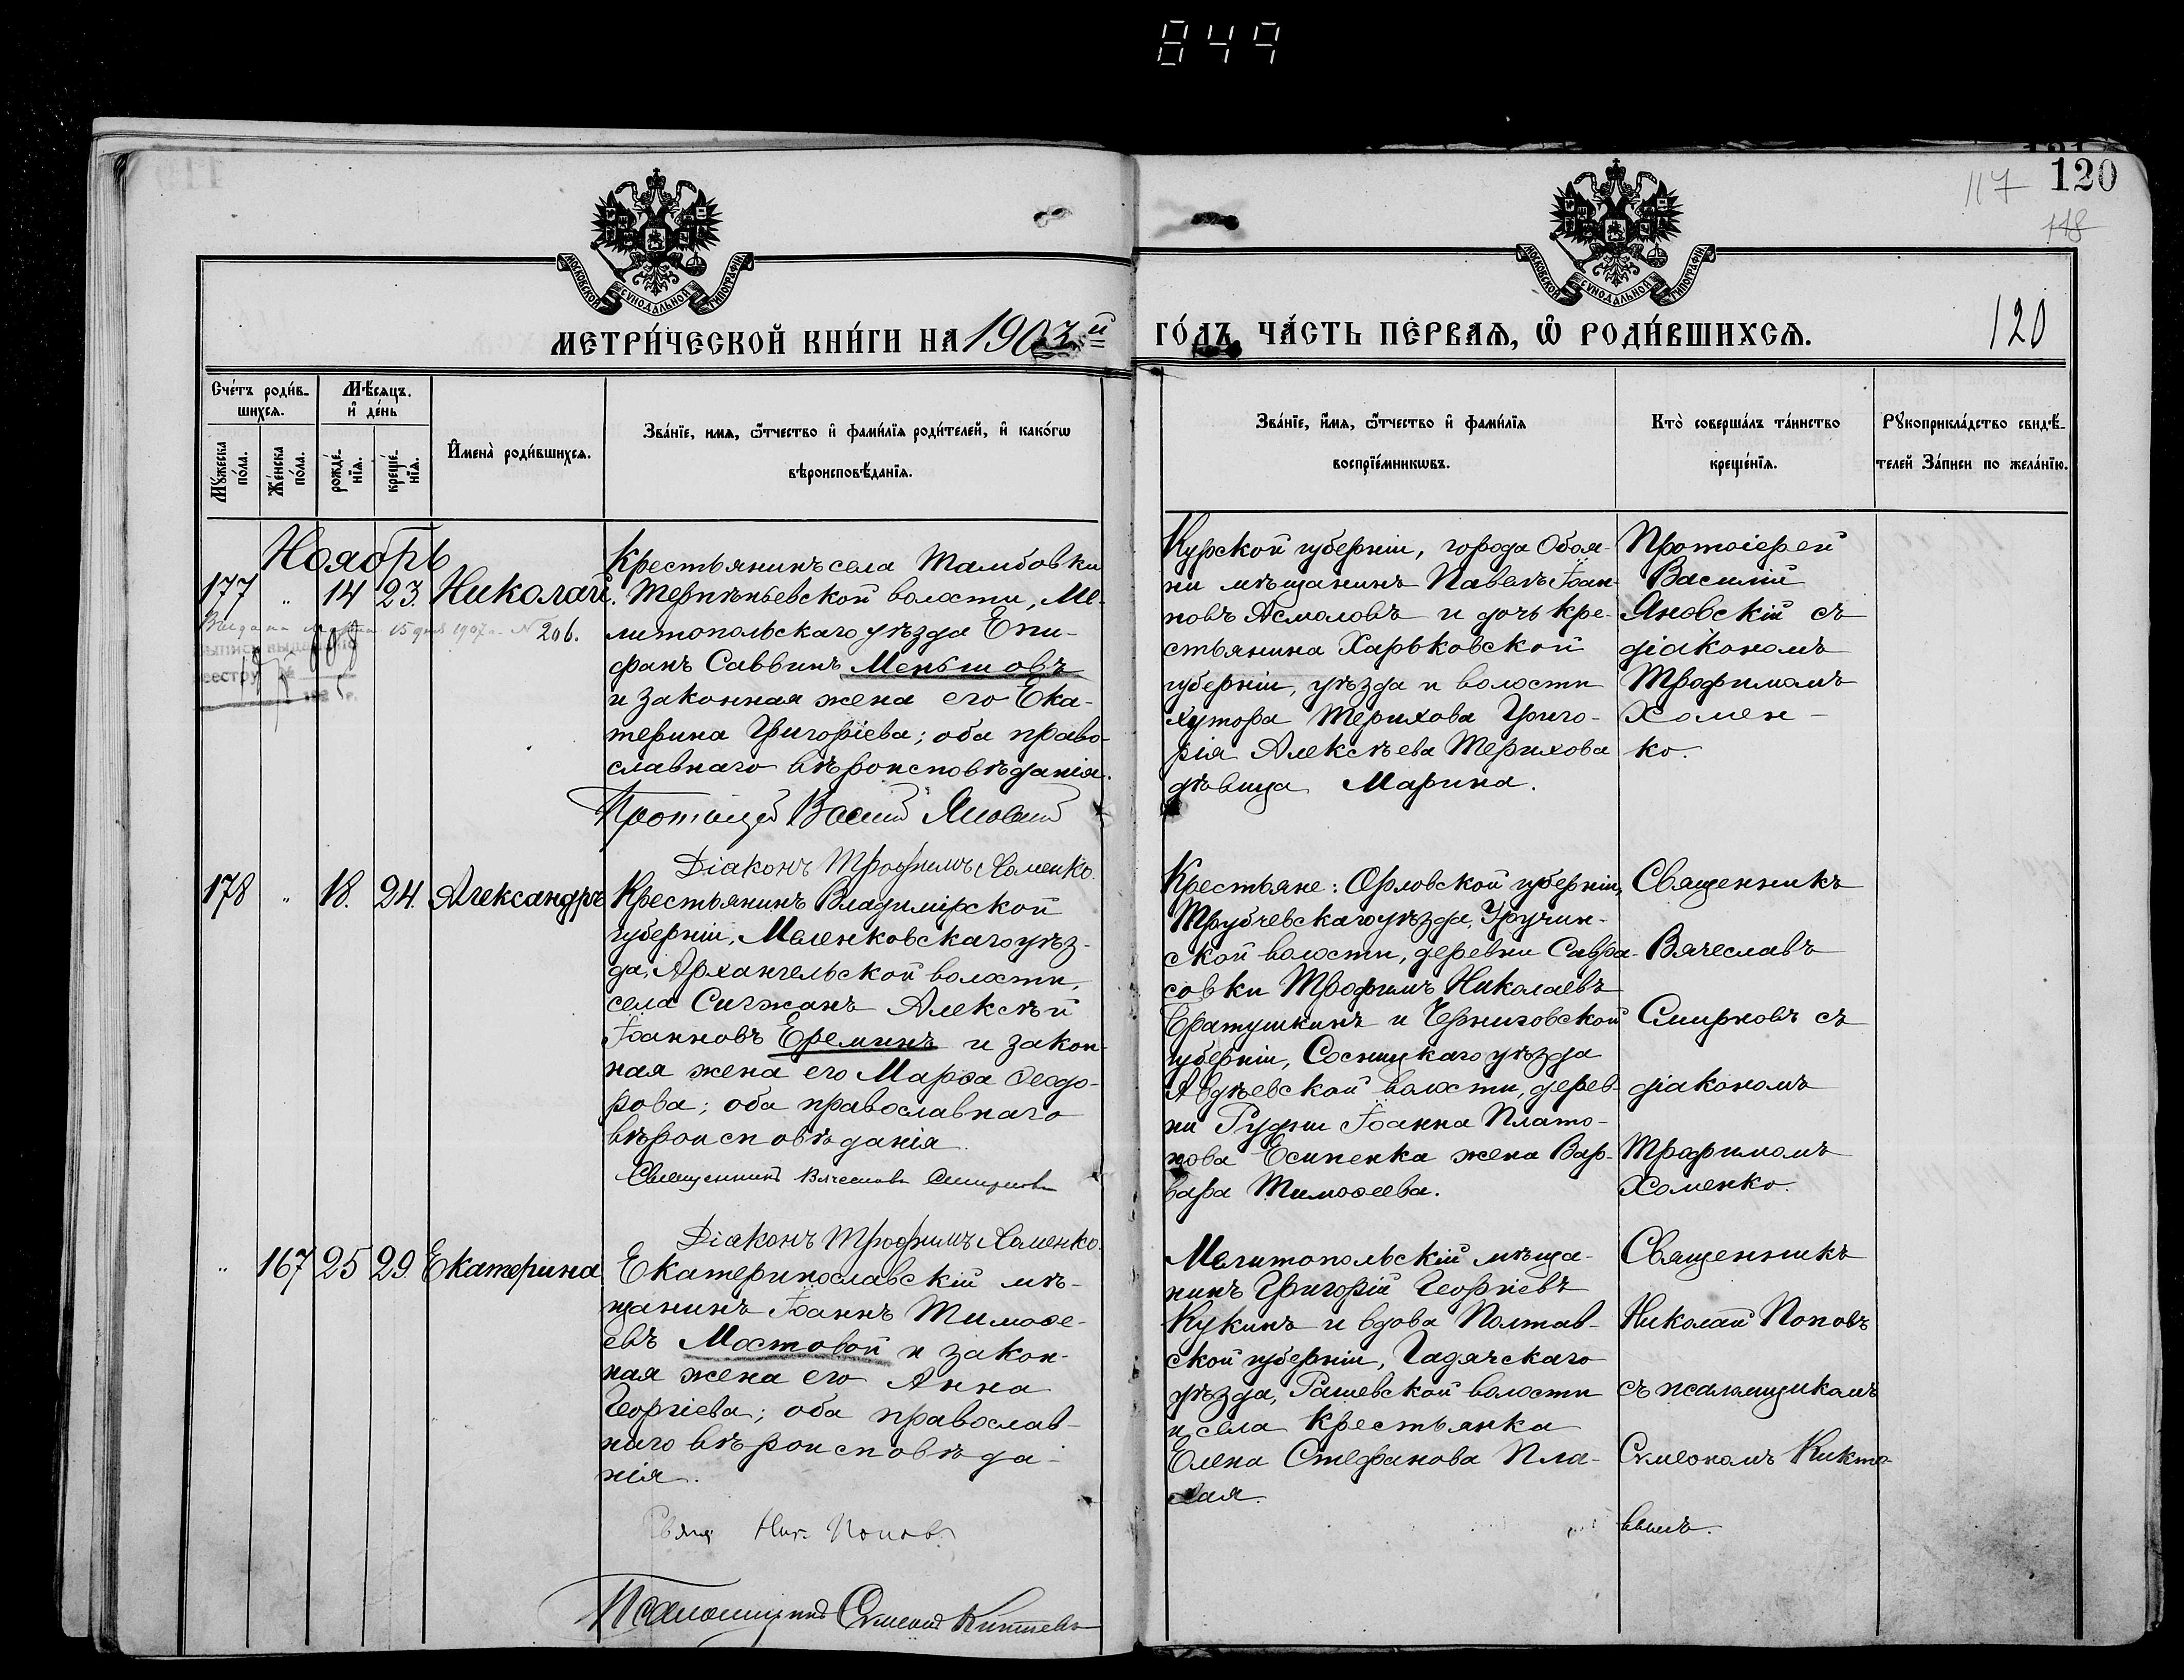 849
МОСКОВСКОЙ СѴНОДАЛЬНОЙ ТИПОГРАФІИ
МОСКОВСКОЙ СѴНОДАЛЬНОЙ ТИПОГРАФІИ
117 120
118
МЕТРИ́ЧЕСКОЙ КНИ́ГИ НА 1903й ГО́ДЪ, ЧА́СТЬ ПЕ́РВАѦ, Ѡ҆ РОДИ́ВШИХСѦ.
120
Сче́тъ роди́в-
шихсѧ.
Мꙋ́жеска по́ла.
Же́нска по́ла.
Мѣ́сѧцъ.
и҆ де́нь
рожде́-
нїѧ.
креще́-
нїѧ.
И҆мена̀ роди́вшихсѧ.
Зва́нїе, имѧ, ѻ҆́тчество и҆ фами́лїѧ роди́телей, и҆ како́гѡ
вѣроисповѣ́данїѧ.
Зва́нїе, и҆́мѧ, ѻ҆́тчество и҆ фами́лїѧ
воспрїе́мникѡвъ.
Кто̀ соверша́лъ та́инство
креще́нїѧ.
Рꙋкоприкла́дство свидѣ́-
телей за́писи по жела́нїю.
Ноябрь
177 " 14 23. Николай.
Выдана 15 дня 1907 г. № 206.
Крестьянинъ села Тамбовки
Терпѣньевской волости, Ме-
литопольскаго уѣзда Епи-
фанъ Саввинъ Меньшовъ
и законная жена его Ека-
терина Григоріева; оба право-
славнаго вѣроисповѣданія.
Протоіерей Василій Яновскій
Діаконъ Трофимъ Хоменко.
Курской губерніи, города Обоя-
ни мѣщанинъ Павелъ Іоан-
новъ Асмоловъ и дочь кре-
стьянина Харьковской
губерніи, уѣзда и волости
хутора Терихова Григо-
рія Алексѣева Терихова
дѣвица Марина.
Протоіерей
Василій
Яновскій съ
діакономъ
Трофимомъ
Хомен-
ко.
178 " 18. 24. Александръ
Крестьянинъ Владимірской
губерніи, Меленковскаго уѣз-
да, Архангельской волости,
села Сигжанъ Алексѣй
Іоанновъ Ереминъ и закон-
ная жена его Марѳа Ѳеодо-
рова; оба православнаго
вѣроисповѣданія.
Священникъ Вячеславъ Смирновъ
Діаконъ Трофимъ Хоменко.
Крестьяне: Орловской губерніи,
Трубчевскаго уѣзда, Уручин-
ской волости, деревни Савра-
совки Трофимъ Николаевъ
Братушкинъ и Черниговской
губерніи, Сосницкаго уѣзда
Авдѣевской волости, дерев-
ни Рудни Іоанна Плато-
нова Есипенка жена Вар-
вара Тимоѳеева.
Священникъ
Вячеславъ
Смирновъ съ
діакономъ
Трофимомъ
Хоменко.
" 167 25 29. Екатерина
Екатеринославскій мѣ-
щанинъ Іоаннъ Тимоѳе-
евъ Мостовой и закон-
ная жена его Анна
Георгіева; оба православ-
наго вѣроисповѣда-
нія.
Свящ. Ник. Поповъ
Псаломщикъ Сѵмеонъ Киктевъ
Мелитопольскій мѣща-
нинъ Григорій Георгіевъ
Кукинъ и вдова Полтав-
ской губерніи, Гадячскаго
уѣзда, Рашевской волости
и села крестьянка
Елена Стефанова Пла-
хая.
Священникъ
Николай Поповъ
съ псаломщикомъ
Сѵмеономъ Кикте-
вымъ.